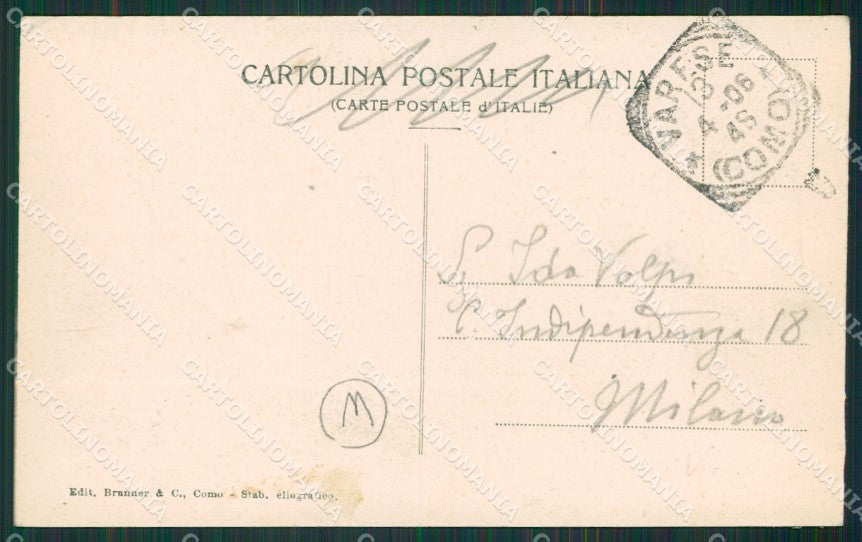 CARTOLINA POSTALE ITALIANA
(CARTE POSTALE d'ITALIE)
VARESE
4 - 06
* (COMO)
S. Ida Volpi
C. Indipendenza 18
Milano
M
Edit. Brunner & C., Como - Stab. eliografico.
CARTOLINOMANIA